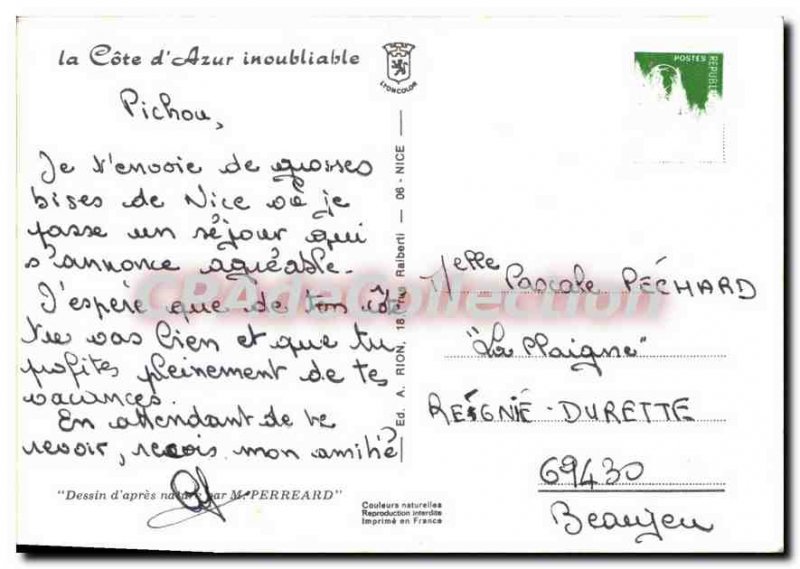 la Côte d'Azur inoubliable
LYONCOLOR
POSTES
Pichou,
Je t'envoie de grosses
bises de Nice où je
passe un séjour qui
s'annonce agréable.
J'espère que de ton côté
tu vas bien et que tu
profites pleinement de tes
vacances.
En attendant de te
revoir, reçois mon amitié
"Dessin d'après nature par M. PERREARD"
Ed. A. RION, 18 Raiberti — 06 - NICE —
Couleurs naturelles
Reproduction interdite
Imprimé en France
Melle Pascale PÉCHARD
"La Plaigne"
REIGNIÉ - DURETTE
69430
Beaujeu
CPAdeCollection